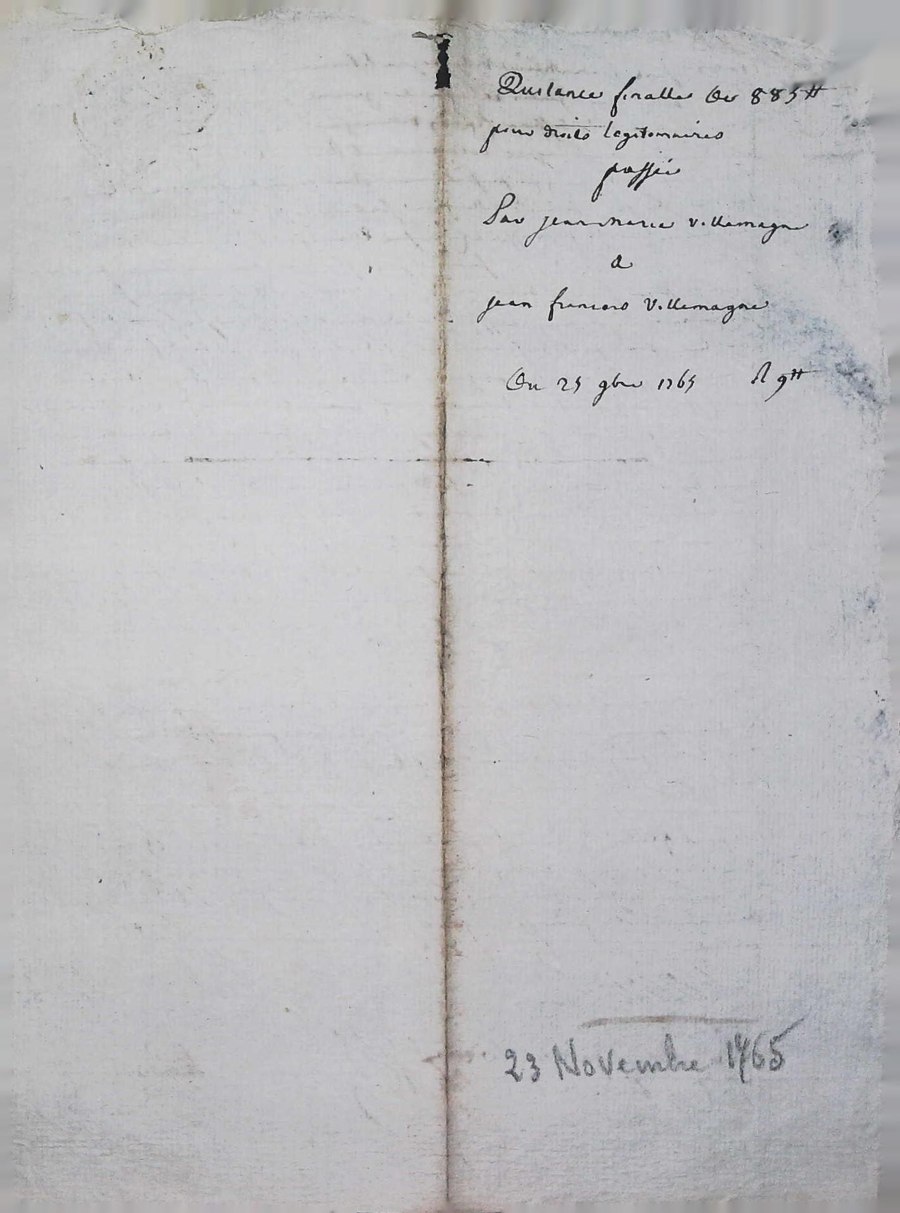 Quitance finalle de 885 ₶
pour droits legitimaires
passée
Par jean marie villemagne
a
jean francois Villemagne
Du 25 9bre 1765 R 9₶
23 Novembre 1765